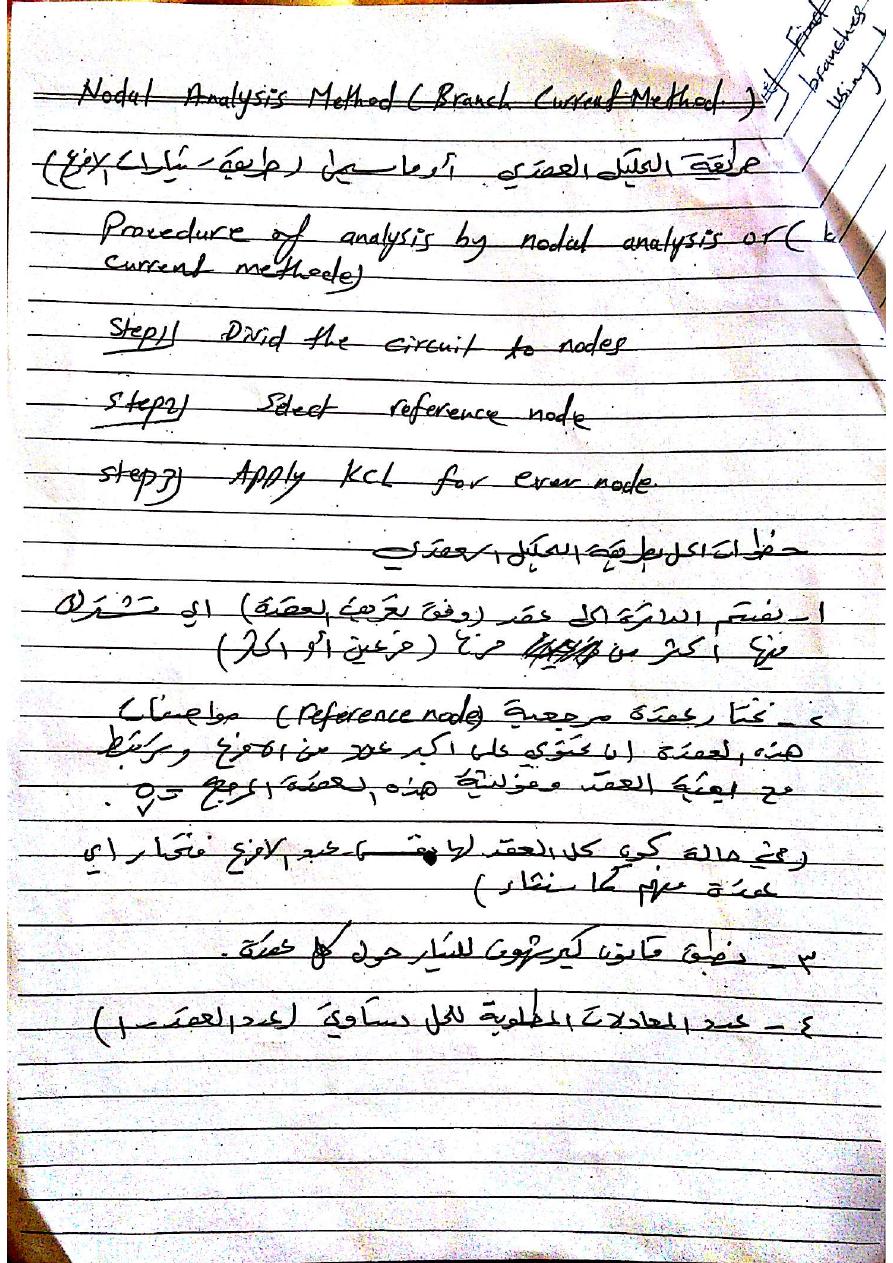 Nodal Analysis Method (Branch Current Method.)
طريقة التحليل العقدي أو ما يسمى (طريقة تيارات الافرع)
Procedure of analysis by nodal analysis or (
current methode)
Step1) Divid the circuit to nodes
Step2) Select reference node
Step3) Apply KCL for ever node.
خطوات الحل بطريقة التحليل العقدي
١- نقسم الدائرة الى عقد (وفق تعريف العقدة) اي تشترك
فيها اكثر من (فرعين أو اكثر)
٢- نختار عقدة مرجعية (reference node) مواصفات
هذه العقدة ان تحتوي على اكبر عدد من الافرع وترتبط
مع بقية العقد وفولتية هذه العقدة المرجع = 0
(في حالة كون كل العقد لها نفس عدد الافرع فنختار اي
عقدة منهم كما نشاء)
٣- نطبق قانون كيرشهوف للتيار حول كل عقدة.
٤- عدد المعادلات المطلوبة للحل يساوي (عدد العقد - ١)
Find
branches
using